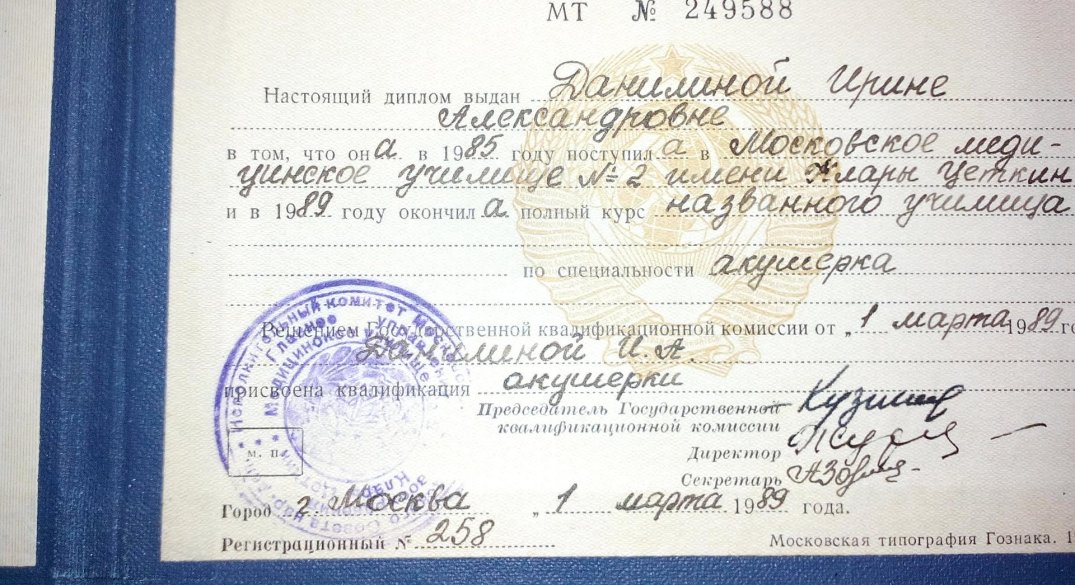 МТ № 249588
Настоящий диплом выдан Данилиной Ирине
Александровне
в том, что она в 1985 году поступила в Московское меди-
цинское училище № 2 имени Клары Цеткин
и в 1989 году окончила полный курс названного училища
по специальности акушерка
Решением Государственной квалификационной комиссии от „ 1 марта 1989 го
Данилиной И. А.
присвоена квалификация акушерки
Председатель Государственной
квалификационной комиссии
Директор
Секретарь
М. П.
Город г. Москва „ 1 марта 1989 года.
Регистрационный № 258
Московская типография Гознака. 1
Исполнительный комитет Моск
Главное управлен
Медицинское училище